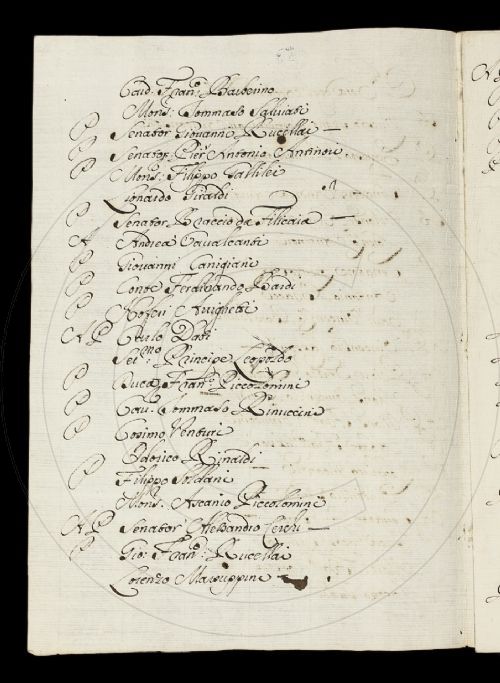 Card. Fran.º Barberino
Mons.r Tommaso Salviati
P Senator Giovanni Rucellai —
P Senator Pier Antonio
P Mons.r Filippo
Lionardo Giraldi
P Senator Braccio da Filicaia —
A Andrea Cavalcanti
P Giovanni Canigiani
P Conte Ferdinando Bardi
P
A P Carlo Dati
Ser.mo Principe Leopoldo
P Duca Fran.º Piccolomini
P Cav. Tommaso Rinuccini
P Cosimo Venturi
Odorico Rinaldi
P Filippo Soldani
Mons. Ascanio Piccolomini
A P Senator Alessandro —
P Gio: Fran.º Rucellai
Lorenzo